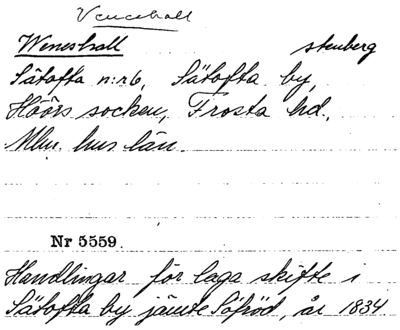 Veneshall
Weneshall stenberg
Sätofta n:r 6, Sätofta by,
Höörs socken, Frosta hd.,
Mlm. hus län.
Nr 5559.
Handlingar för laga skifte i
Sätofta by jämte Söröd, år 1834.